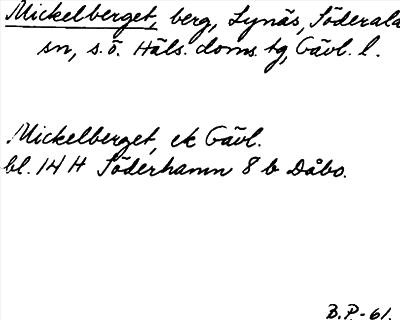 Mickelberget, berg, Lynäs, Söderala
sn, s.ö. Häls. doms. tg, Gävl. l.
Mickelberget, ek Gävl.
bl. 14 H Söderhamn 8 b Dåbo.
B.P.-61.